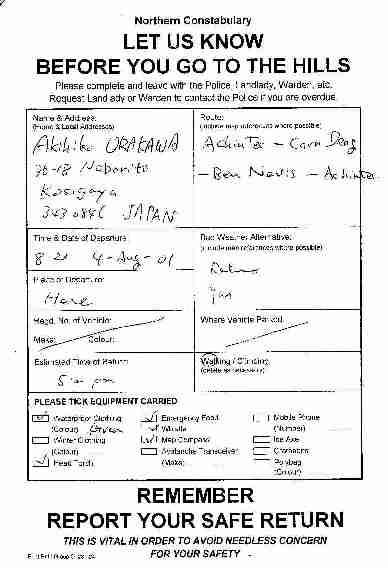 Northern Constabulary
LET US KNOW
BEFORE YOU GO TO THE HILLS
Please complete and leave with the Police, Landlady, Warden, etc.
Request Landlady or Warden to contact the Police if you are overdue.
Name & Address:
(Home & Local Addresses)
Akihiko URAKAWA
30-18
Kosigaya
JAPAN
Route:
(include map references where possible)
Achintee - Carn Dearg
- Ben Nevis - Achintee
Time & Date of Departure:
4-Aug-01
Bad Weather Alternative:
(include map references where possible)
Place of Departure:
Here
Regd. No. of Vehicle:
Make: Colour:
Where Vehicle Parked:
Estimated Time of Return:
pm
Walking / Climbing
(delete as necessary)
PLEASE TICK EQUIPMENT CARRIED
Waterproof Clothing
(Colour) Green
Winter Clothing
(Colour)
Head Torch
Emergency Food
Whistle
Map Compass
Avalanche Transceiver
(Make)
Mobile Phone
(Number)
Ice Axe
Crampons
Polybag
(Colour)
REMEMBER
REPORT YOUR SAFE RETURN
THIS IS VITAL IN ORDER TO AVOID NEEDLESS CONCERN
FOR YOUR SAFETY